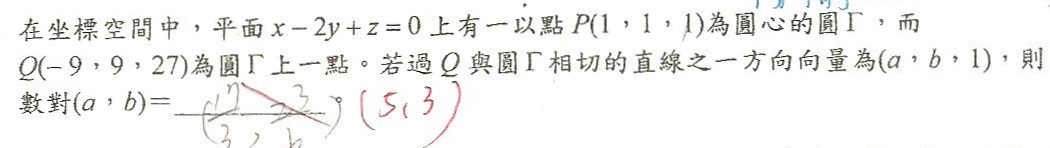 在坐標空間中，平面 x－2y＋z＝0 上有一以點 P(1，1，1)為圓心的圓Γ，而
Q(－9，9，27)為圓Γ上一點。若過 Q 與圓Γ相切的直線之一方向向量為(a，b，1)，則
數對(a，b)＝ (5,3)